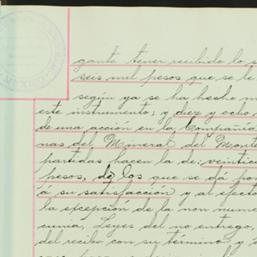 gante tener recibido lo s
seis mil pesos que se le
según ya se ha hecho m
este instrumento; y diez y ocho
de una acción en la Compañía
nas del Mineral del Monte
partidas hacen la de: veintic
pesos, de los que se dá por
á su satisfacción y al efecto
la excepción de la non nume
cunia, Leyes del no entrego,
del recibo con su término y L